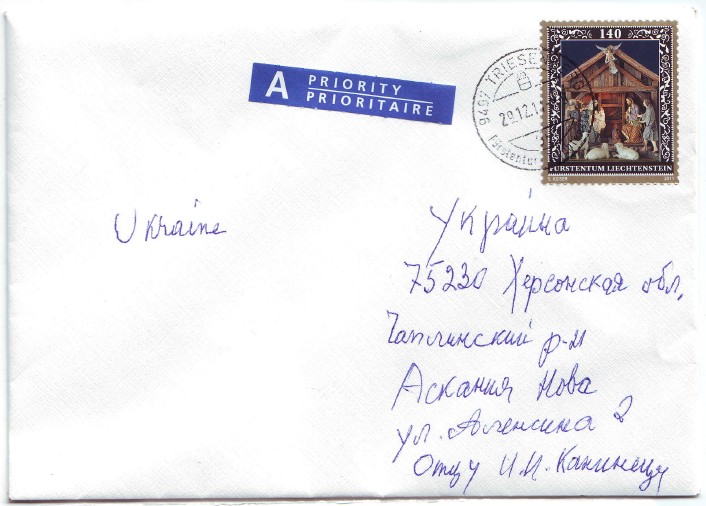 A PRIORITY
PRIORITAIRE
9497 TRIESENBERG
29.12.1
Fürstentum
140
FÜRSTENTUM LIECHTENSTEIN
2011
Ukraine
Україна
75230 Херсонская обл,
Чаплинский р-н
Аскания Нова
ул. 2
Отцу И.И. Канинецу